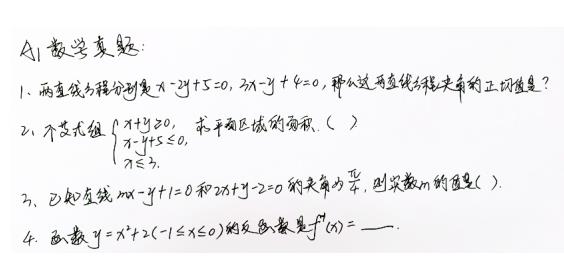 AI数学真题:
1、两直线方程分别是x-2y+5=0, 3x-y+4=0,那么这两直线方程夹角的正切值是?
2、不等式组{x+y≥0, x-y+5≤0, x≤3. 求平面区域的面积.( )
3、已知直线mx-y+1=0和2x+y-2=0的夹角为π/4,则实数m的值是( ).
4、函数y=x²+2(-1≤x≤0)的反函数是f⁻¹(x)=____.